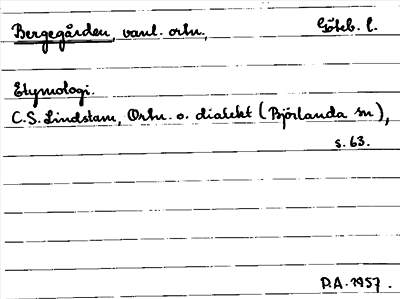 Bergegården, vanl. ortn., Göteb. l.
Etymologi.
C.S. Lindstam, Ortn. o. dialekt (Björlanda sn),
s. 63.
D.A. 1957.